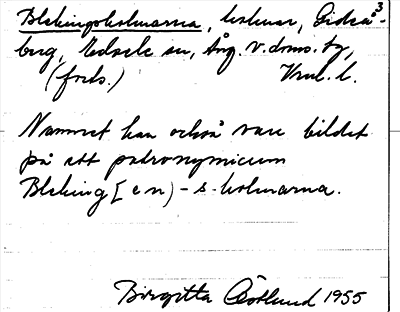 Blekingsholmarna, holmar, Gideå-³
berg, Edsele sn, Ång. v. doms. tg,
(forts.) Vml. l.
Namnet kan också vara bildat
på ett patronymicum
Bleking[en)-s-holmarna.
Birgitta Östlund 1955